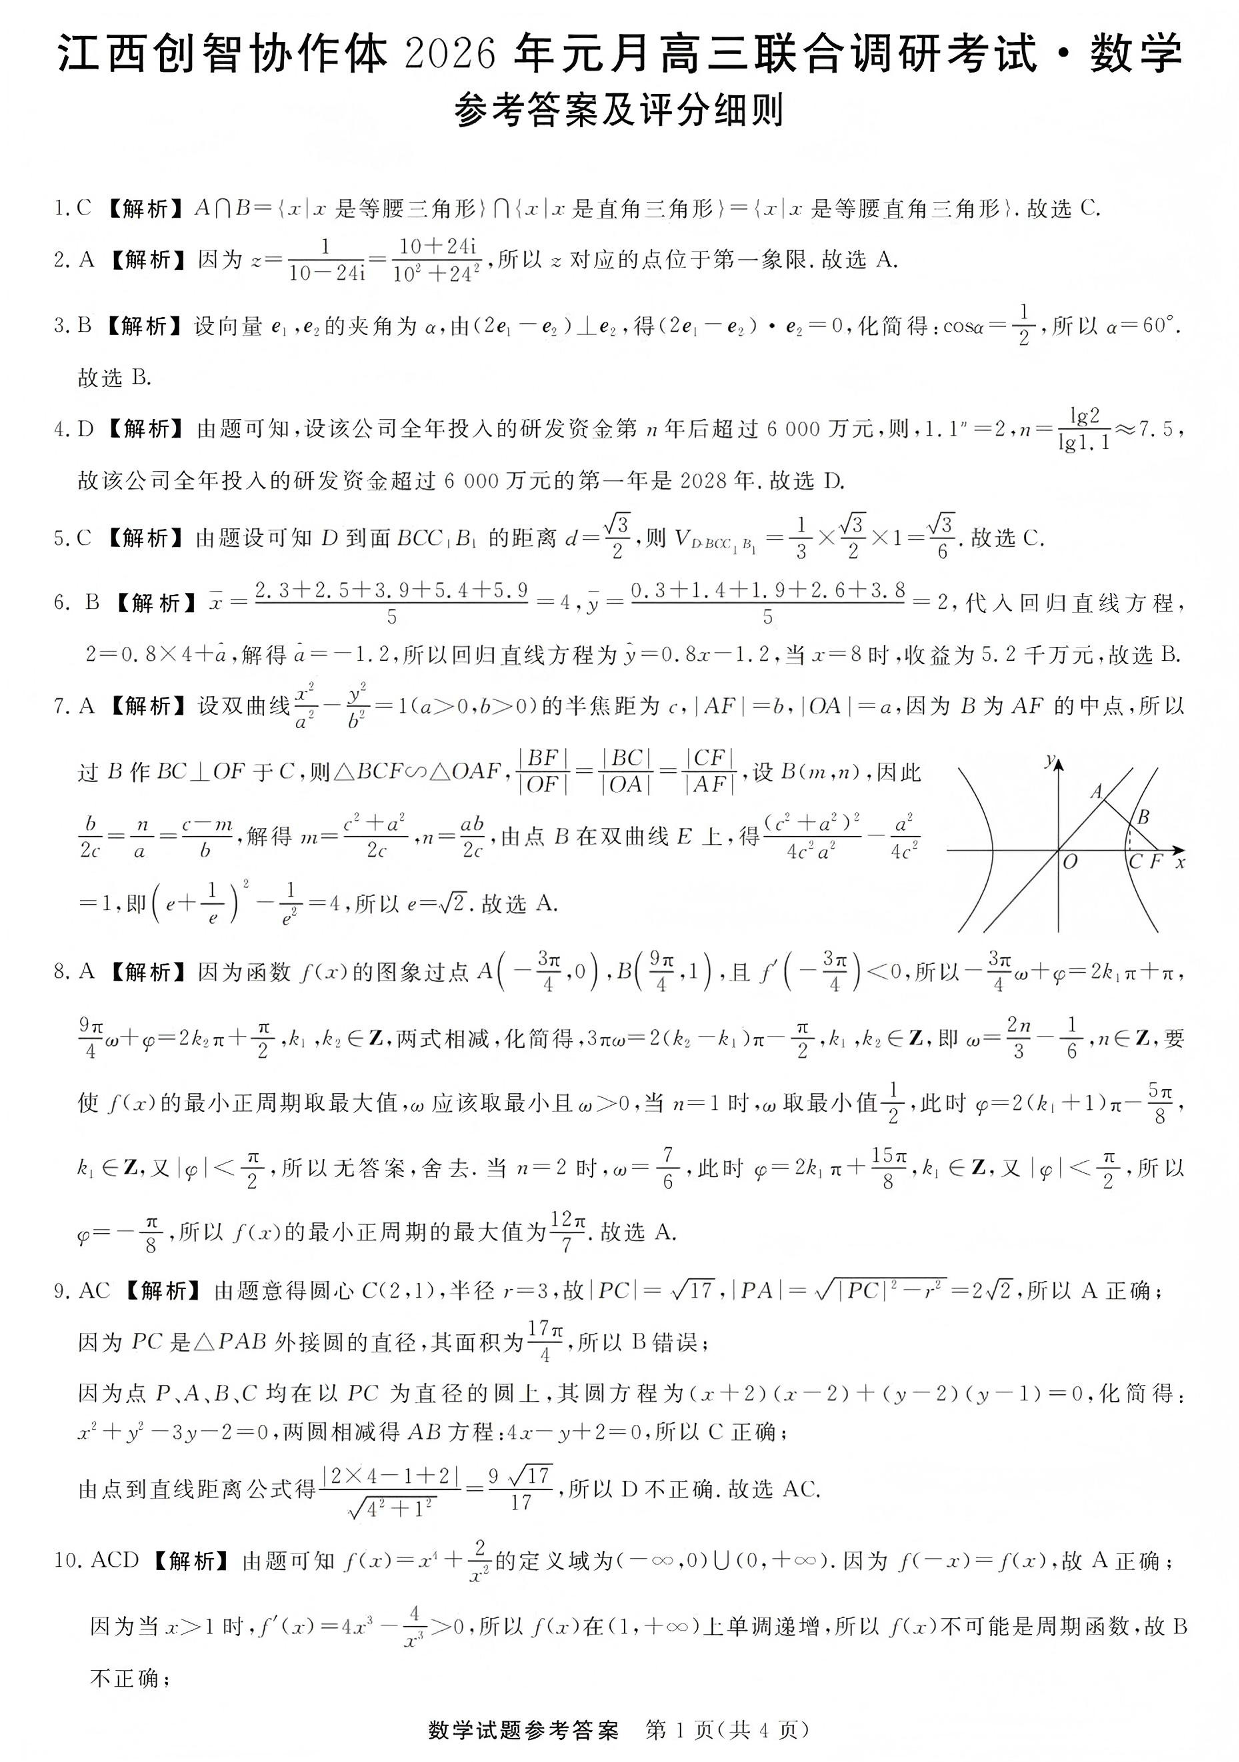 江西创智协作体 2026 年元月高三联合调研考试·数学
参考答案及评分细则
1. C 【解析】A∩B={x|x 是等腰三角形}∩{x|x 是直角三角形}={x|x 是等腰直角三角形}. 故选 C.
2. A 【解析】因为 z=\frac{1}{10-24i}=\frac{10+24i}{10²+24²},所以 z 对应的点位于第一象限. 故选 A.
3. B 【解析】设向量 e₁,e₂的夹角为 α,由(2e₁-e₂)⊥e₂,得(2e₁-e₂)·e₂=0,化简得:cosα=\frac{1}{2},所以 α=60°.
故选 B.
4. D 【解析】由题可知,设该公司全年投入的研发资金第 n 年后超过 6 000 万元,则,1.1ⁿ=2,n=\frac{lg2}{lg1.1}≈7.5,
故该公司全年投入的研发资金超过 6 000 万元的第一年是 2028 年. 故选 D.
5. C 【解析】由题设可知 D 到面 BCC₁B₁ 的距离 d=\frac{√3}{2},则 V_{D-BCC₁B₁}=\frac{1}{3}×\frac{√3}{2}×1=\frac{√3}{6}. 故选 C.
6. B 【解析】\bar{x}=\frac{2.3+2.5+3.9+5.4+5.9}{5}=4,\bar{y}=\frac{0.3+1.4+1.9+2.6+3.8}{5}=2,代入回归直线方程,
2=0.8×4+\hat{a},解得 \hat{a}=-1.2,所以回归直线方程为 \hat{y}=0.8x-1.2,当 x=8 时,收益为 5.2 千万元,故选 B.
7. A 【解析】设双曲线\frac{x²}{a²}-\frac{y²}{b²}=1(a>0,b>0)的半焦距为 c,|AF|=b,|OA|=a,因为 B 为 AF 的中点,所以
过 B 作 BC⊥OF 于 C,则△BCF∽△OAF,\frac{|BF|}{|OF|}=\frac{|BC|}{|OA|}=\frac{|CF|}{|AF|},设 B(m,n),因此
\frac{b}{2c}=\frac{n}{a}=\frac{c-m}{b},解得 m=\frac{c²+a²}{2c},n=\frac{ab}{2c},由点 B 在双曲线 E 上,得\frac{(c²+a²)²}{4c²a²}-\frac{a²}{4c²}
=1,即(e+\frac{1}{e})²-\frac{1}{e²}=4,所以 e=√2. 故选 A.
y
A
B
O
C F x
8. A 【解析】因为函数 f(x)的图象过点 A(-\frac{3π}{4},0),B(\frac{9π}{4},1),且 f′(-\frac{3π}{4})<0,所以-\frac{3π}{4}ω+φ=2k₁π+π,
\frac{9π}{4}ω+φ=2k₂π+\frac{π}{2},k₁,k₂∈Z,两式相减,化简得,3πω=2(k₂-k₁)π-\frac{π}{2},k₁,k₂∈Z,即 ω=\frac{2n}{3}-\frac{1}{6},n∈Z,要
使 f(x)的最小正周期取最大值,ω 应该取最小且 ω>0,当 n=1 时,ω 取最小值\frac{1}{2},此时 φ=2(k₁+1)π-\frac{5π}{8},
k₁∈Z,又|φ|<\frac{π}{2},所以无答案,舍去. 当 n=2 时,ω=\frac{7}{6},此时 φ=2k₁π+\frac{15π}{8},k₁∈Z,又|φ|<\frac{π}{2},所以
φ=-\frac{π}{8},所以 f(x)的最小正周期的最大值为\frac{12π}{7}. 故选 A.
9. AC 【解析】由题意得圆心 C(2,1),半径 r=3,故|PC|=√17,|PA|=\sqrt{|PC|²-r²}=2√2,所以 A 正确;
因为 PC 是△PAB 外接圆的直径,其面积为\frac{17π}{4},所以 B 错误;
因为点 P、A、B、C 均在以 PC 为直径的圆上,其圆方程为(x+2)(x-2)+(y-2)(y-1)=0,化简得:
x²+y²-3y-2=0,两圆相减得 AB 方程:4x-y+2=0,所以 C 正确;
由点到直线距离公式得\frac{|2×4-1+2|}{\sqrt{4²+1²}}=\frac{9√17}{17},所以 D 不正确. 故选 AC.
10. ACD 【解析】由题可知 f(x)=x⁴+\frac{2}{x²}的定义域为(-∞,0)∪(0,+∞). 因为 f(-x)=f(x),故 A 正确;
因为当 x>1 时,f′(x)=4x³-\frac{4}{x³}>0,所以 f(x)在(1,+∞)上单调递增,所以 f(x)不可能是周期函数,故 B
不正确;
数学试题参考答案 第 1 页(共 4 页)